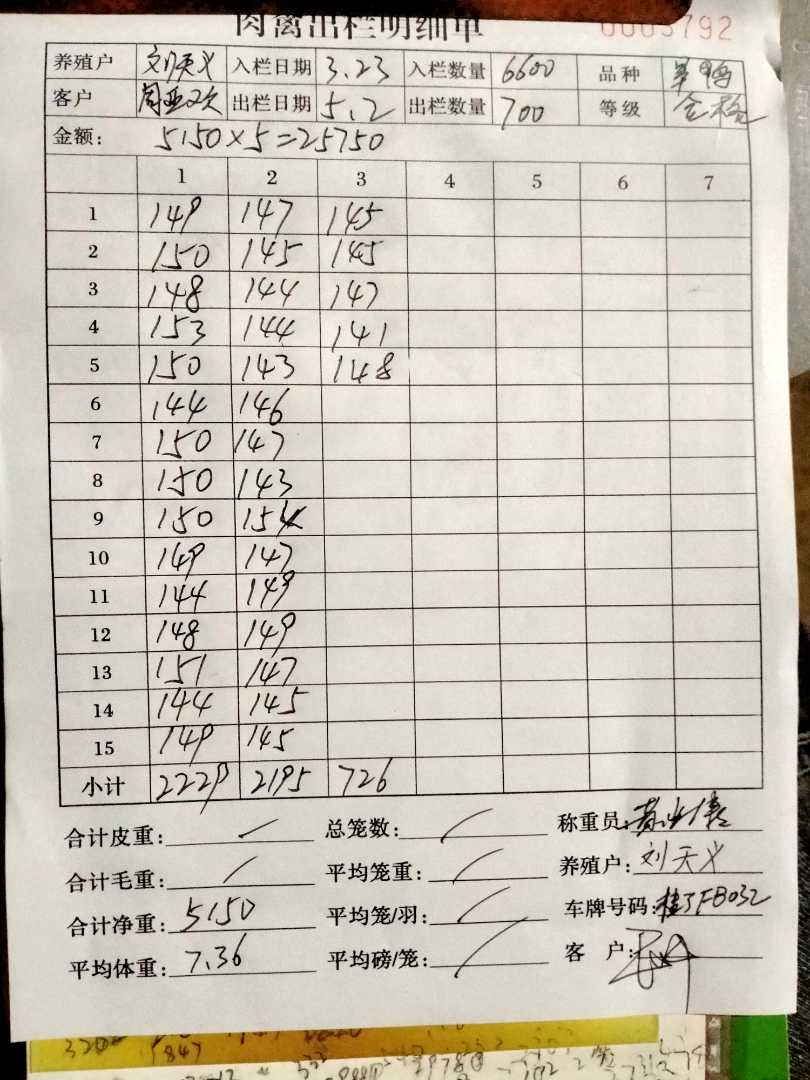 肉禽出栏明细单 0003792
养殖户 刘天义 入栏日期 3.23 入栏数量 6600 品种
客户 出栏日期 5.2 出栏数量 700 等级 合格
金额: 5150×5=25750
1 2 3 4 5 6 7
1 149 147 145
2 150 145 145
3 148 144 147
4 153 144 141
5 150 143 148
6 144 146
7 150 147
8 150 143
9 150 154
10 149 147
11 144 149
12 148 149
13 151 147
14 144 145
15 149 145
小计 2229 2195 726
合计皮重: 总笼数: 称重员:
合计毛重: 平均笼重: 养殖户: 刘天义
合计净重: 5150 平均笼/羽: 车牌号码: 桂J FB032
平均体重: 7.36 平均磅/笼: 客 户:
3200
847